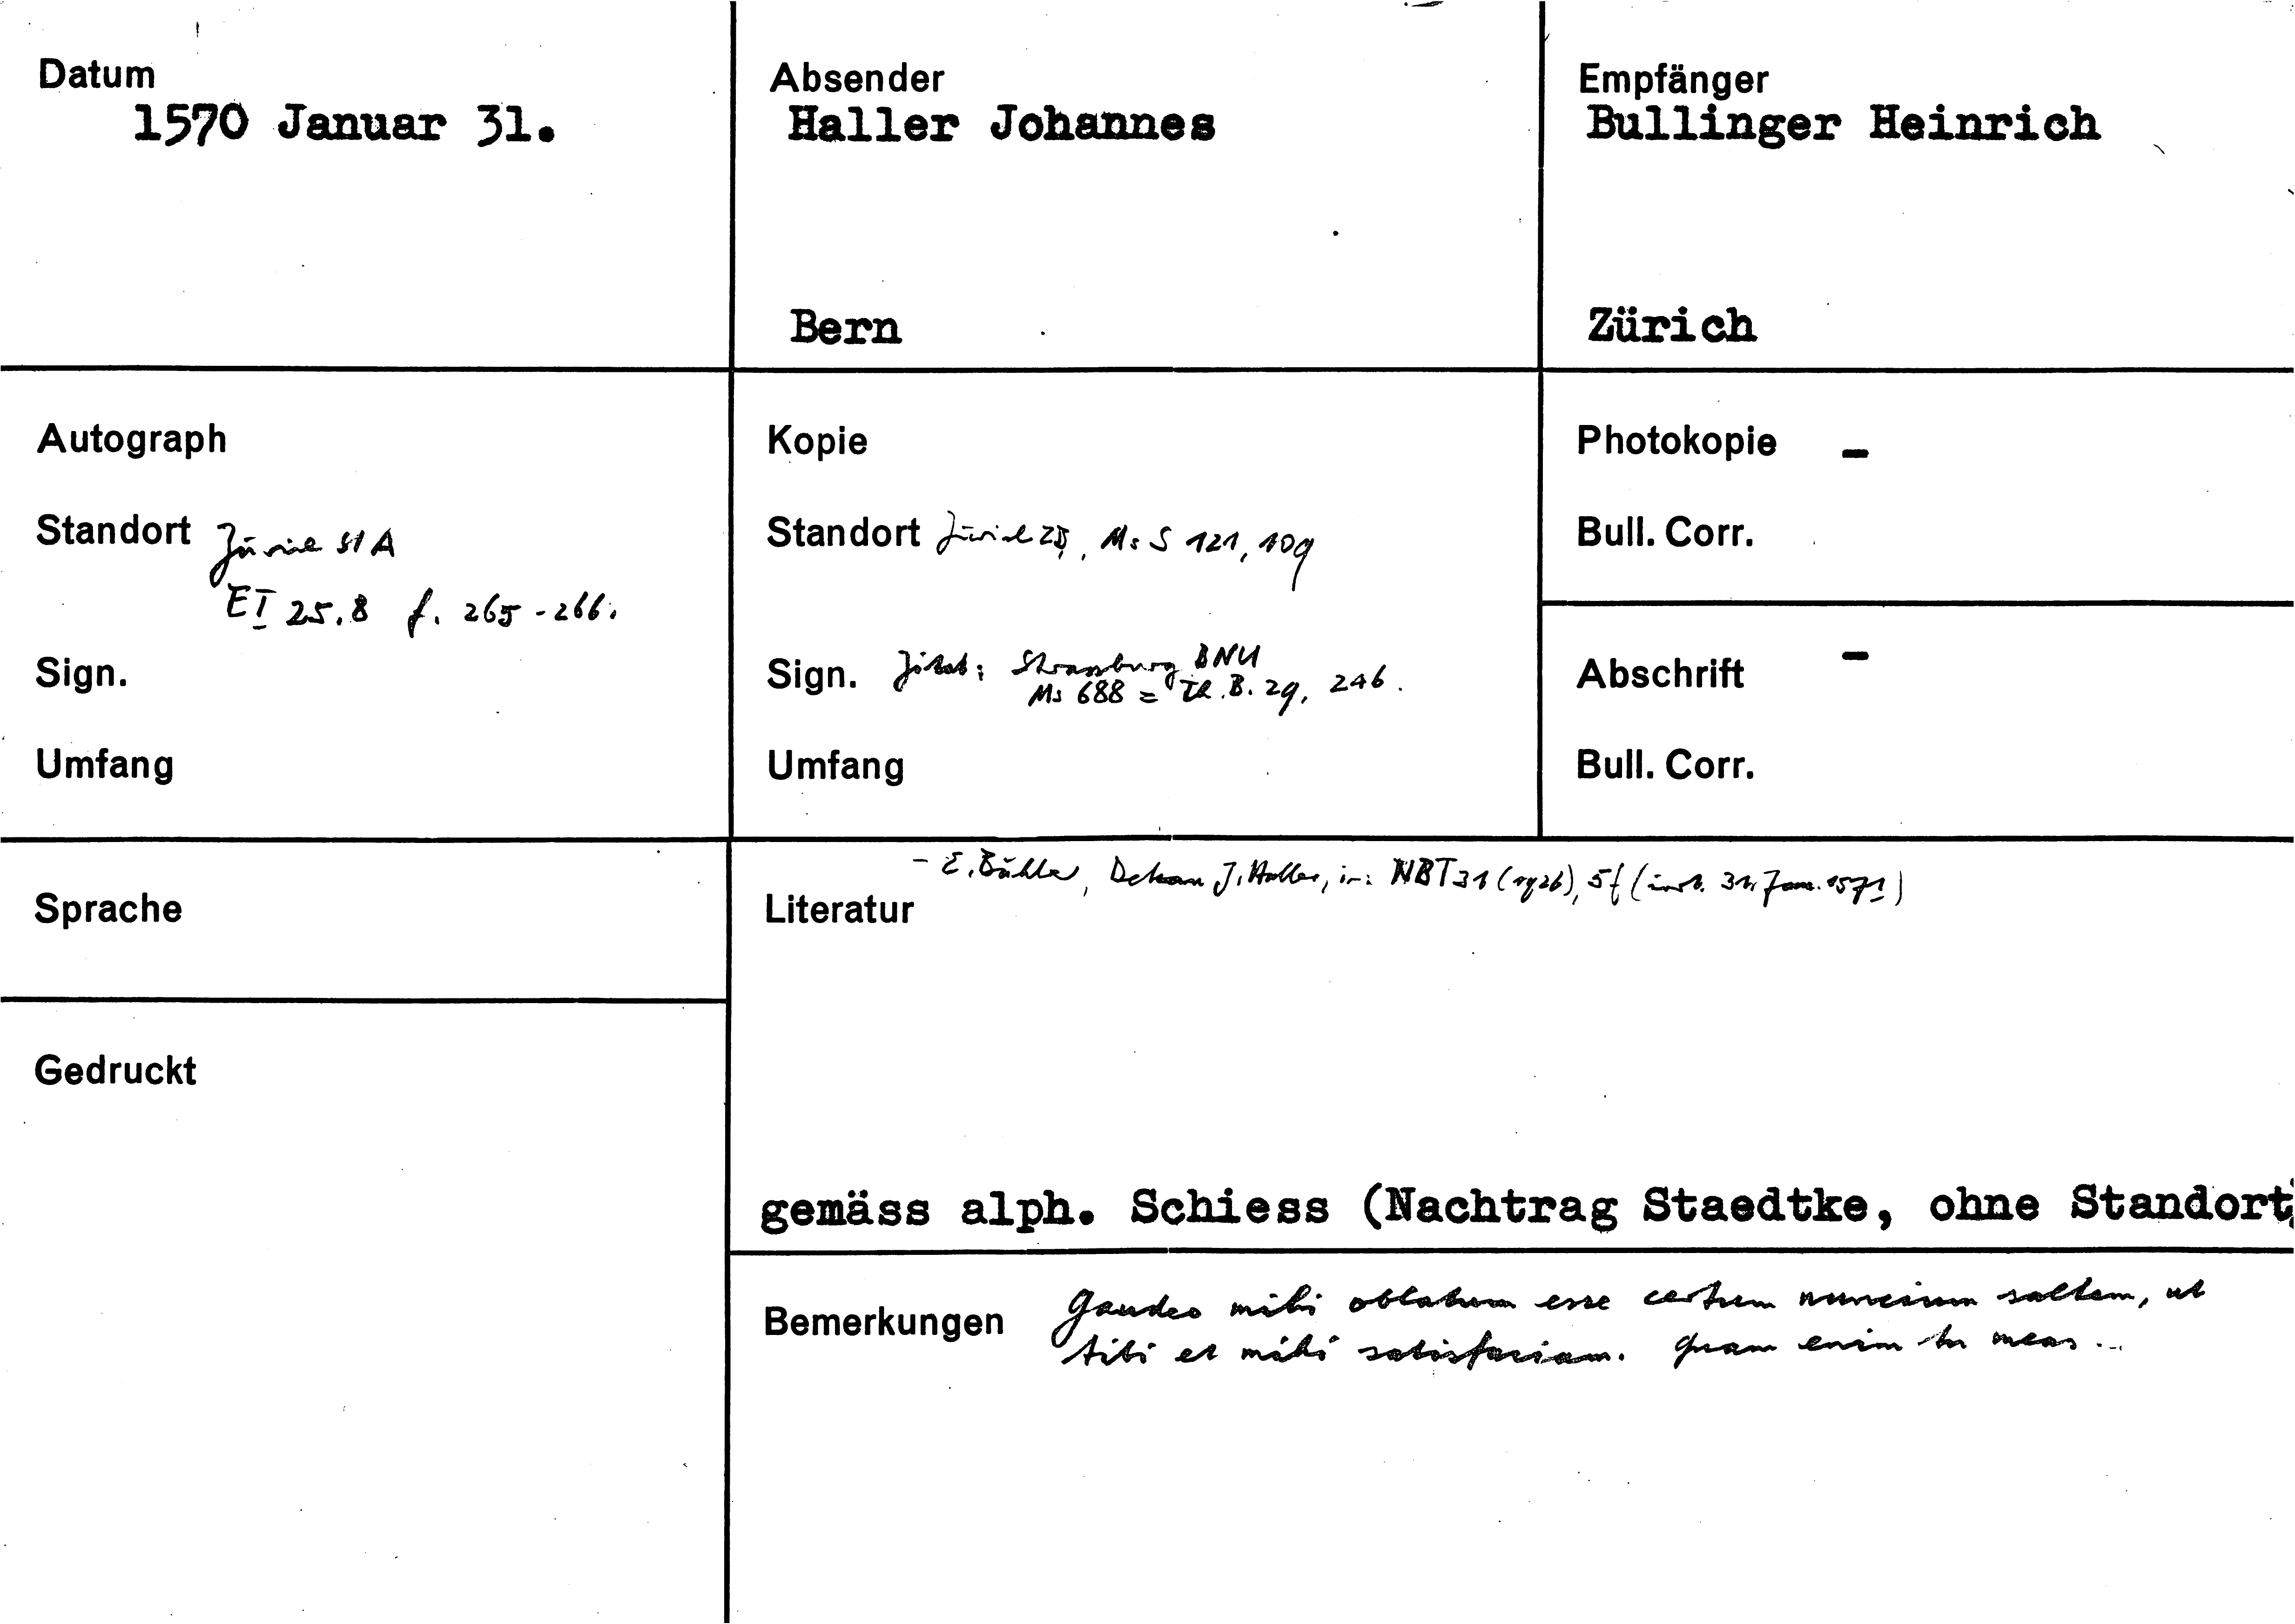 Datum
1570 Januar 31.
Absender
Haller Johannes
Bern
Empfänger
Bullinger Heinrich
Zürich
Autograph
Standort Zürich StA
E I 25.8 f. 265-266.
Sign.
Umfang
Kopie
Standort Zürich ZB, Ms S 121, 109
Sign. Zitat: Strassburg BNU
Ms 688 = Th. B. 29, 246.
Umfang
Photokopie -
Bull. Corr.
Abschrift -
Bull. Corr.
Sprache
Gedruckt
- E. Bähler, Dekan J. Haller, in: NBT 31 (1926), 5f (irrt. 31. Jan. 1571)
Literatur
gemäss alph. Schiess (Nachtrag Staedtke, ohne Standort
Bemerkungen Gaudeo mihi oblatum esse certum nuncium saltem, ut
tibi et mihi satisfaciam. Quam enim tu meas ...